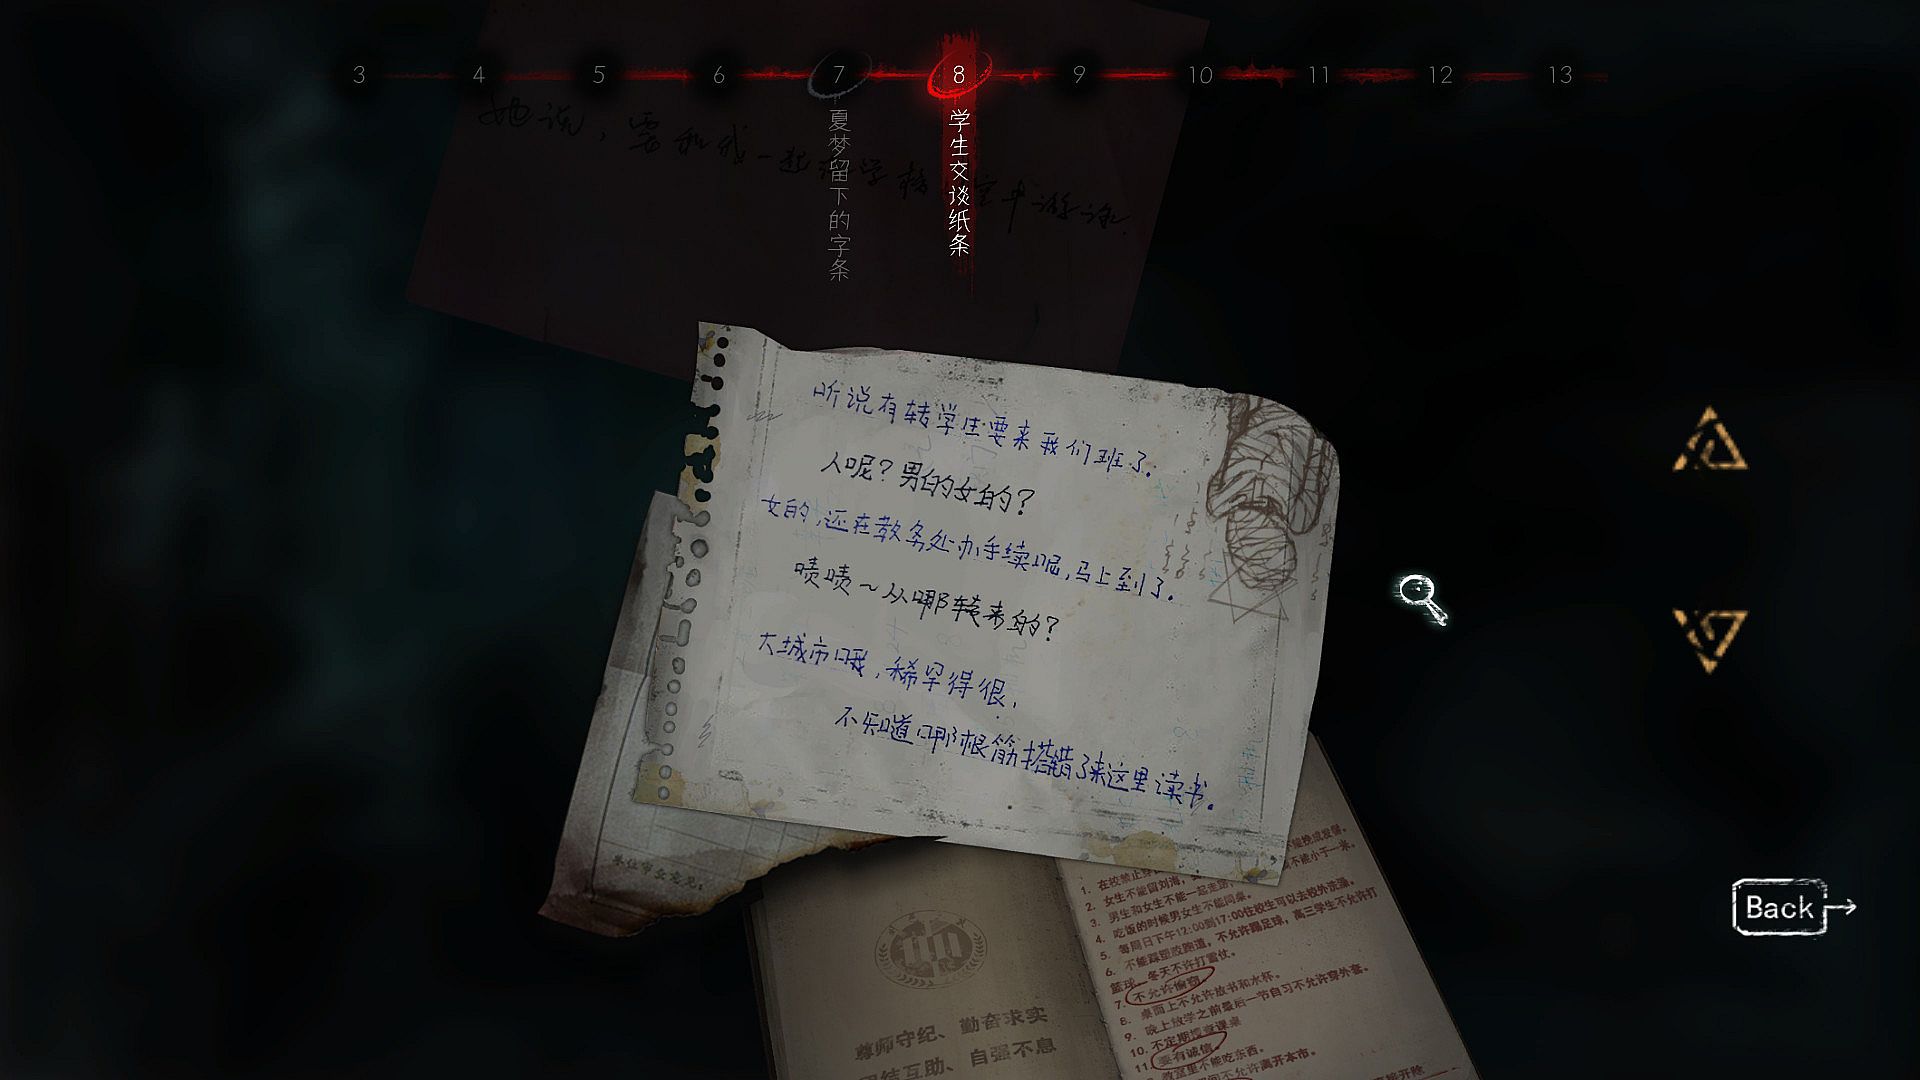 3 4 5 6 7 8 9 10 11 12 13
夏梦留下的字条
学生交谈纸条
她说，要和我一起
听说有转学生要来我们班了。
人呢？男的女的？
女的，还在教务处办手续呢，马上到了。
啧啧～从哪转来的？
大城市哦，稀罕得很，
不知道哪根筋搭错了来这里读书。
Back
单位审查意见：
尊师守纪、勤奋求实
团结互助、自强不息
不能挽成发髻。
不能小于一米。
1. 在校禁止穿
2. 女生不能留刘海，
3. 男生和女生不能一起走路，
4. 吃饭的时候男女生不能同桌。
5. 每周日下午12:00到17:00住校生可以去校外洗澡。
6. 不能踩塑胶跑道，不允许踢足球，高三学生不允许打
篮球，冬天不许打雪仗。
7. 不允许偷窃
8. 桌面上不允许放书和水杯。
9. 晚上放学之前最后一节自习不允许穿外套。
10. 不定期搜查课桌
11. 要有诚信。
教室里不能吃东西。
间不允许离开本市。
开除